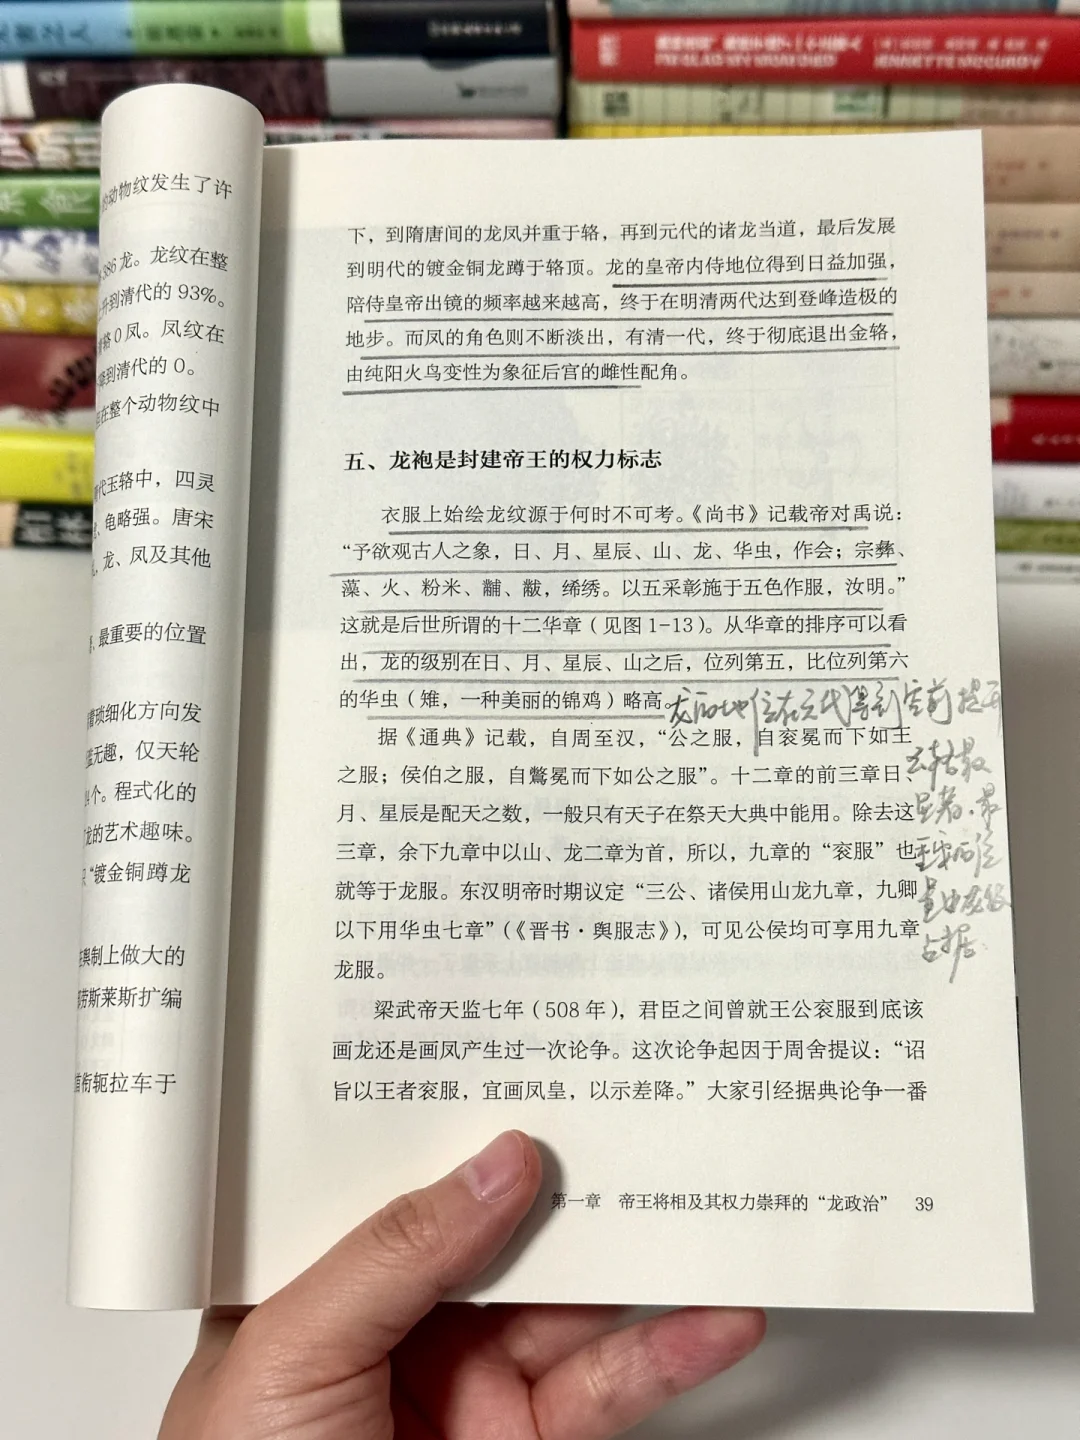 JENNETTE McCURDY
动物纹发生了许
386龙。龙纹在整
升到清代的 93%。
辂0凤。凤纹在
降到清代的 0。
在整个动物纹中
代玉辂中，四灵
、龟略强。唐宋
，龙、凤及其他
、最重要的位置
琐细化方向发
无趣，仅天轮
个。程式化的
龙的艺术趣味。
“镀金铜蹲龙
舆制上做大的
劳斯莱斯扩编
衔轭拉车于
下，到隋唐间的龙凤并重于辂，再到元代的诸龙当道，最后发展
到明代的镀金铜龙蹲于辂顶。龙的皇帝内侍地位得到日益加强，
陪侍皇帝出镜的频率越来越高，终于在明清两代达到登峰造极的
地步。而凤的角色则不断淡出，有清一代，终于彻底退出金辂，
由纯阳火鸟变性为象征后宫的雌性配角。
五、龙袍是封建帝王的权力标志
衣服上始绘龙纹源于何时不可考。《尚书》记载帝对禹说：
“予欲观古人之象，日、月、星辰、山、龙、华虫，作会；宗彝、
藻、火、粉米、黼、黻，绨绣。以五采彰施于五色作服，汝明。”
这就是后世所谓的十二华章（见图 1-13）。从华章的排序可以看
出，龙的级别在日、月、星辰、山之后，位列第五，比位列第六
的华虫（雉，一种美丽的锦鸡）略高。
龙的地位在元代得到空前提升
据《通典》记载，自周至汉，“公之服，自衮冕而下如王
之服；侯伯之服，自鷩冕而下如公之服”。十二章的前三章日、
月、星辰是配天之数，一般只有天子在祭天大典中能用。除去这
三章，余下九章中以山、龙二章为首，所以，九章的“衮服”也
就等于龙服。东汉明帝时期议定“三公、诸侯用山龙九章，九卿
以下用华虫七章”（《晋书·舆服志》），可见公侯均可享用九章
龙服。
占据
梁武帝天监七年（508 年），君臣之间曾就王公衮服到底该
画龙还是画凤产生过一次论争。这次论争起因于周舍提议：“诏
旨以王者衮服，宜画凤皇，以示差降。”大家引经据典论争一番
第一章 帝王将相及其权力崇拜的“龙政治” 39